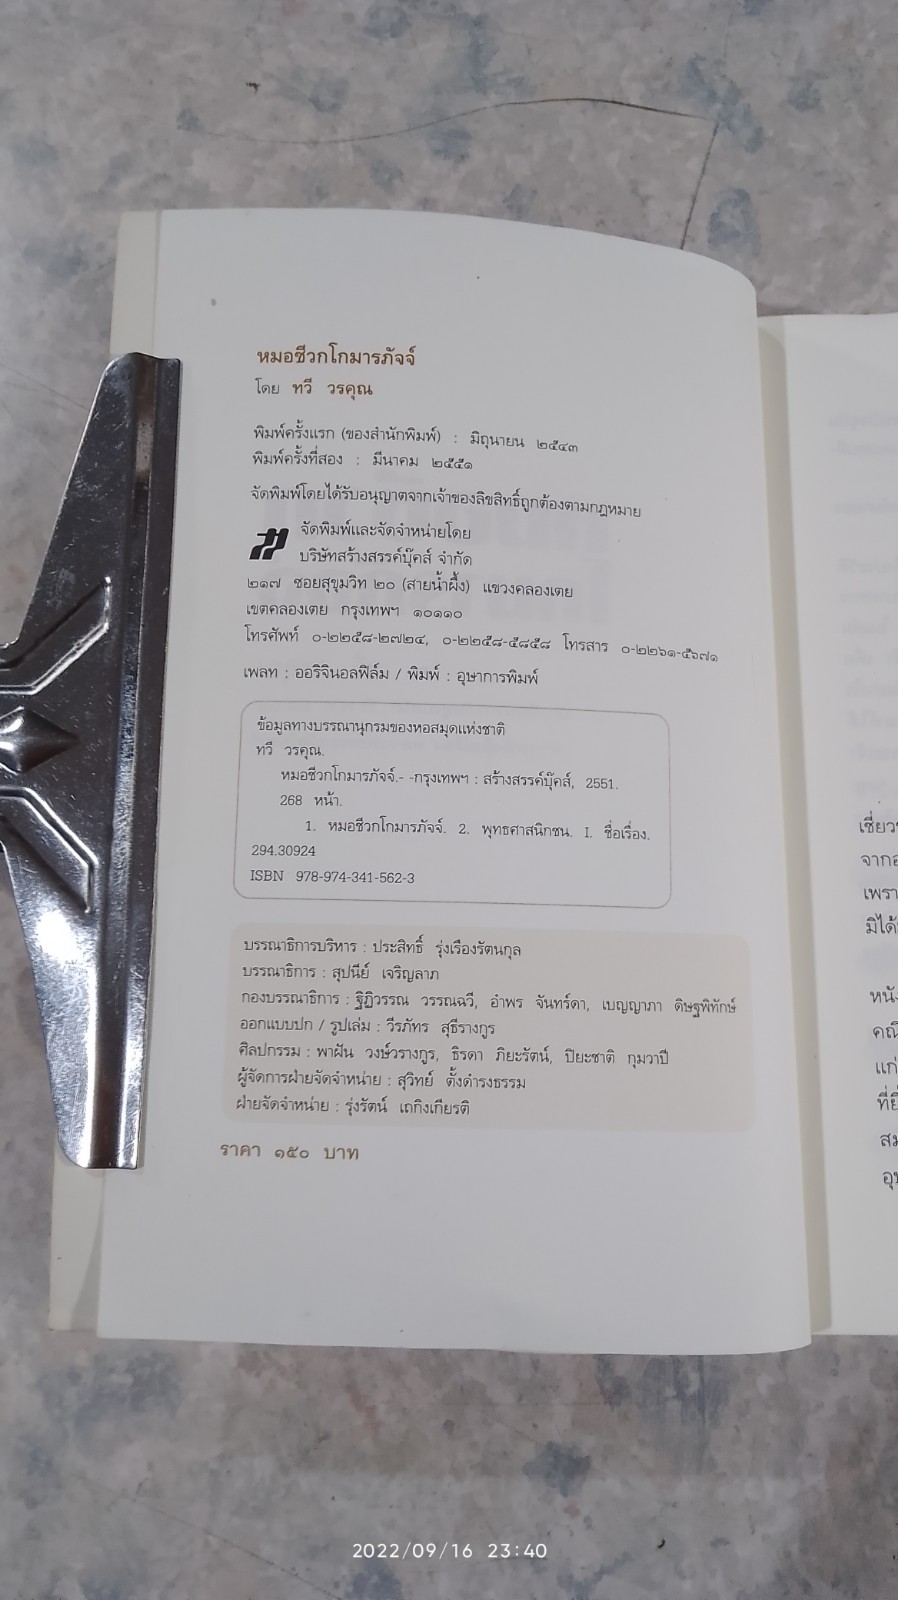 หมอชีวกโกมารภัจจ์
โดย ทวี วรคุณ
พิมพ์ครั้งแรก (ของสำนักพิมพ์) : มิถุนายน ๒๕๔๓
พิมพ์ครั้งที่สอง : มีนาคม ๒๕๕๑
จัดพิมพ์โดยได้รับอนุญาตจากเจ้าของลิขสิทธิ์ถูกต้องตามกฎหมาย
จัดพิมพ์และจัดจำหน่ายโดย
บริษัทสร้างสรรค์บุ๊คส์ จำกัด
๒๑๗ ซอยสุขุมวิท ๒๐ (สายน้ำผึ้ง) แขวงคลองเตย
เขตคลองเตย กรุงเทพฯ ๑๐๑๑๐
โทรศัพท์ ๐-๒๒๕๘-๒๗๒๔, ๐-๒๒๕๘-๕๘๕๘ โทรสาร ๐-๒๒๖๑-๕๖๗๑
เพลท : ออริจินอลฟิล์ม / พิมพ์ : อุษาการพิมพ์
ข้อมูลทางบรรณานุกรมของหอสมุดแห่งชาติ
ทวี วรคุณ.
หมอชีวกโกมารภัจจ์.- -กรุงเทพฯ : สร้างสรรค์บุ๊คส์, 2551.
268 หน้า.
1. หมอชีวกโกมารภัจจ์. 2. พุทธศาสนิกชน. I. ชื่อเรื่อง.
294.30924
ISBN 978-974-341-562-3
บรรณาธิการบริหาร : ประสิทธิ์ รุ่งเรืองรัตนกุล
บรรณาธิการ : สุปนีย์ เจริญลาภ
กองบรรณาธิการ : ฐิฏิวรรณ วรรณฉวี, อำพร จันทร์ดา, เบญญาภา ดิษฐพิทักษ์
ออกแบบปก / รูปเล่ม : วีรภัทร สุธีรางกูร
ศิลปกรรม : พาฝัน วงษ์วรางกูร, ธิรดา ภิยะรัตน์, ปิยะชาติ กุมวาปี
ผู้จัดการฝ่ายจัดจำหน่าย : สุวิทย์ ตั้งดำรงธรรม
ฝ่ายจัดจำหน่าย : รุ่งรัตน์ เถกิงเกียรติ
ราคา ๑๕๐ บาท
เพรา
มิได้
หนัง
แก่
2022/09/16 23:40